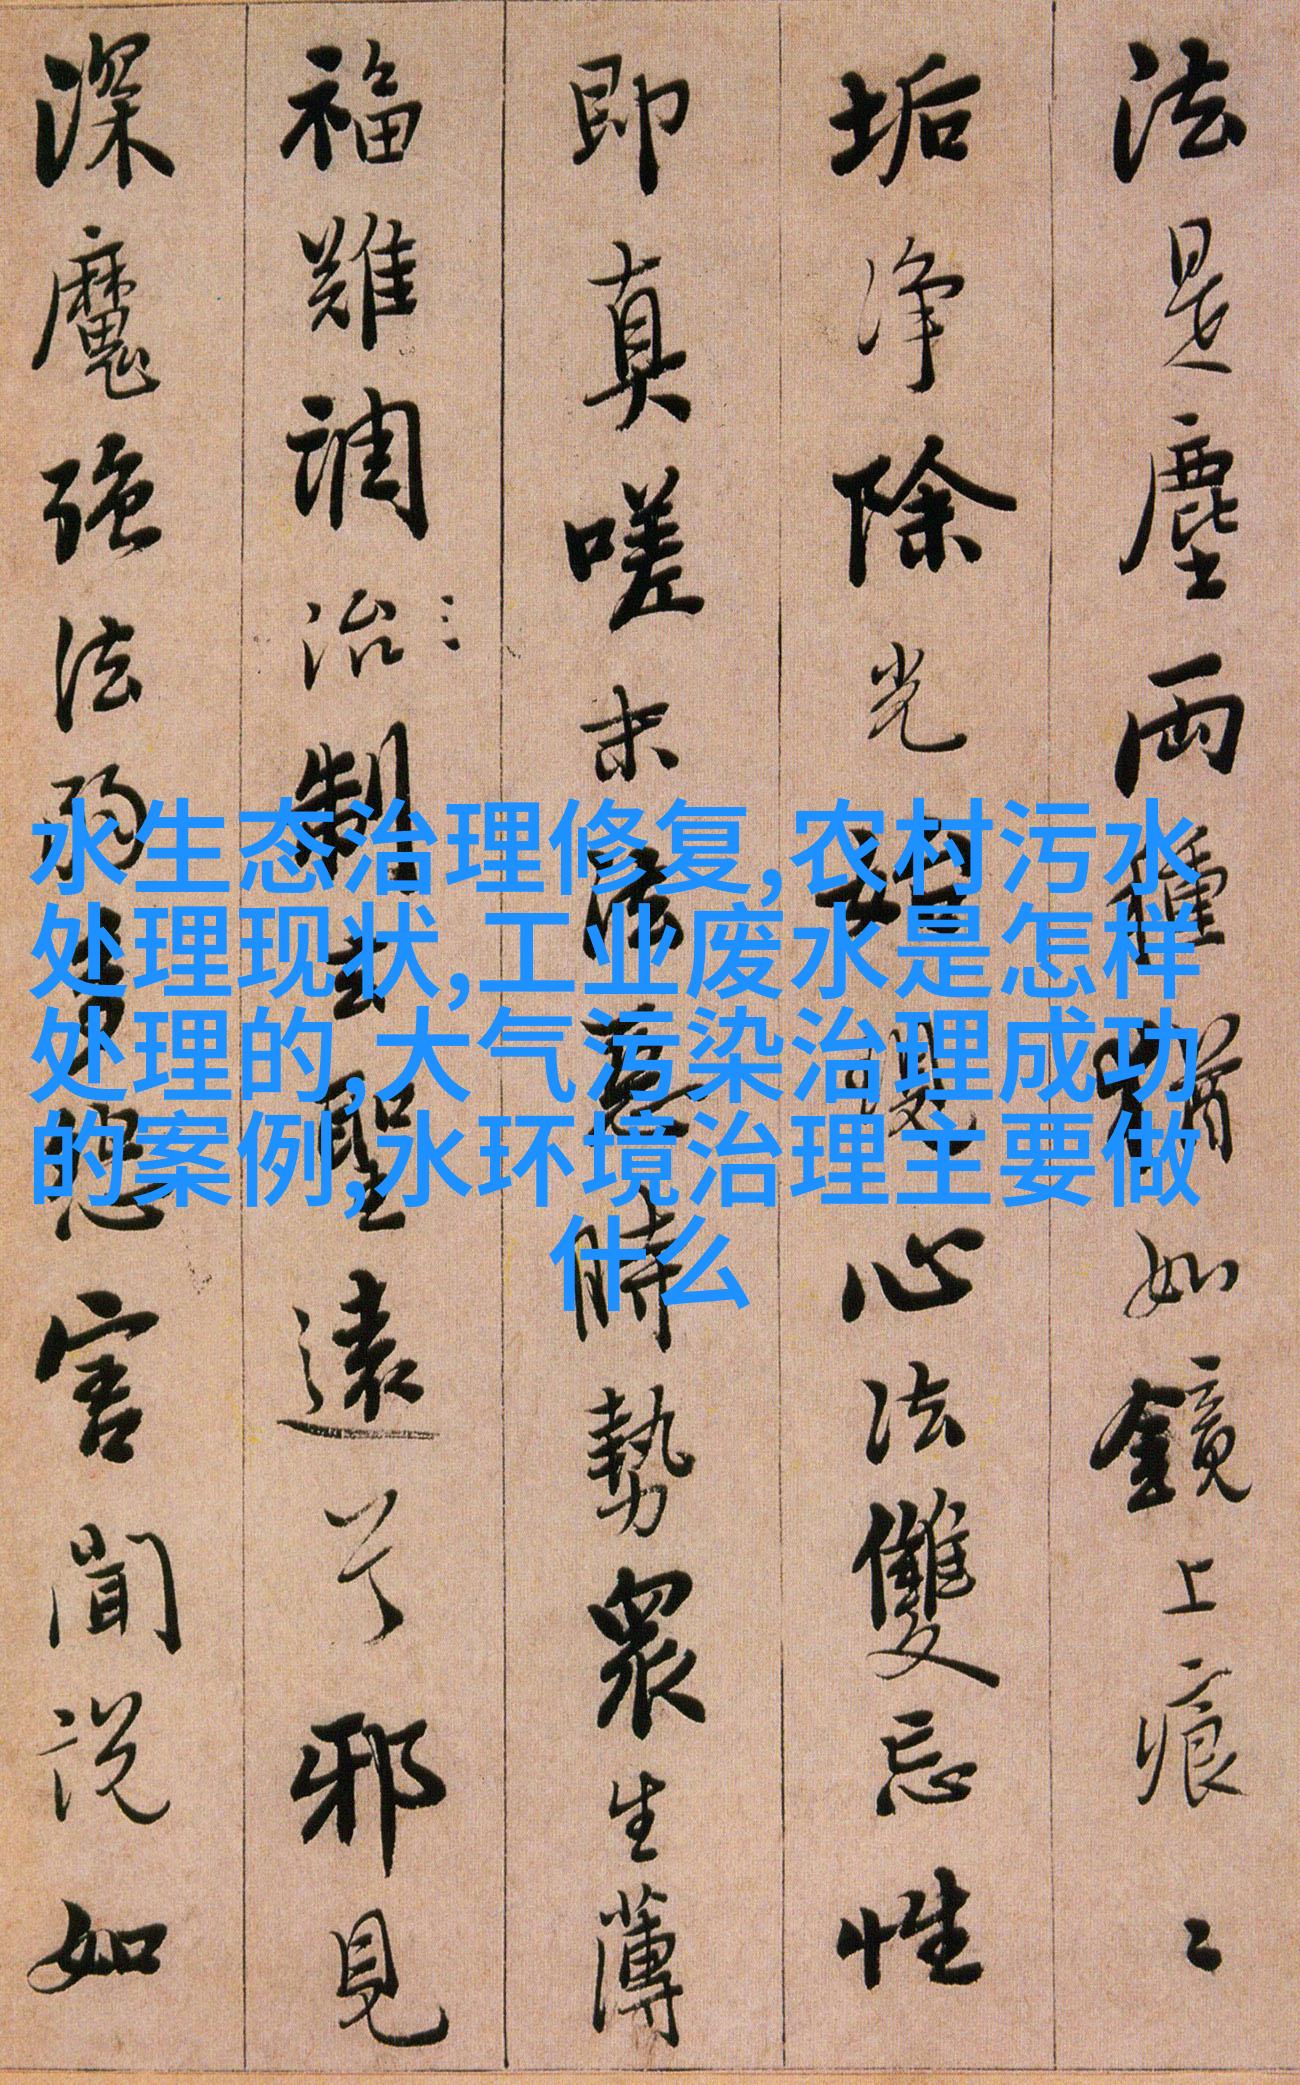 法是塵兩種猶如鏡上痕〻
垢净除光始現心法雙忘性
即真嗟末法惡時勢衆生薄
福難調治制去聖遠兮邪見
深魔強法弱多怨害聞說如
水生态治理修复,农村污水
处理现状,工业废水是怎样
处理的,大气污染治理成功
的案例,水环境治理主要做
什么